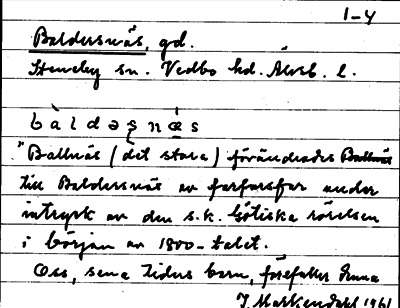 1-4
Baldersnäs, gd.
Steneby sn. Vedbo hd. Älvsb. l.
bàldəṣnä́s
"Ballnäs (det stora) förändrades Ballnäs
till Baldersnäs av farfarsfar under
intryck av den s.k. Götiska rörelsen
i början av 1800-talet.
Oss, sena tiders barn, förefaller denna
J. Markendahl 1961